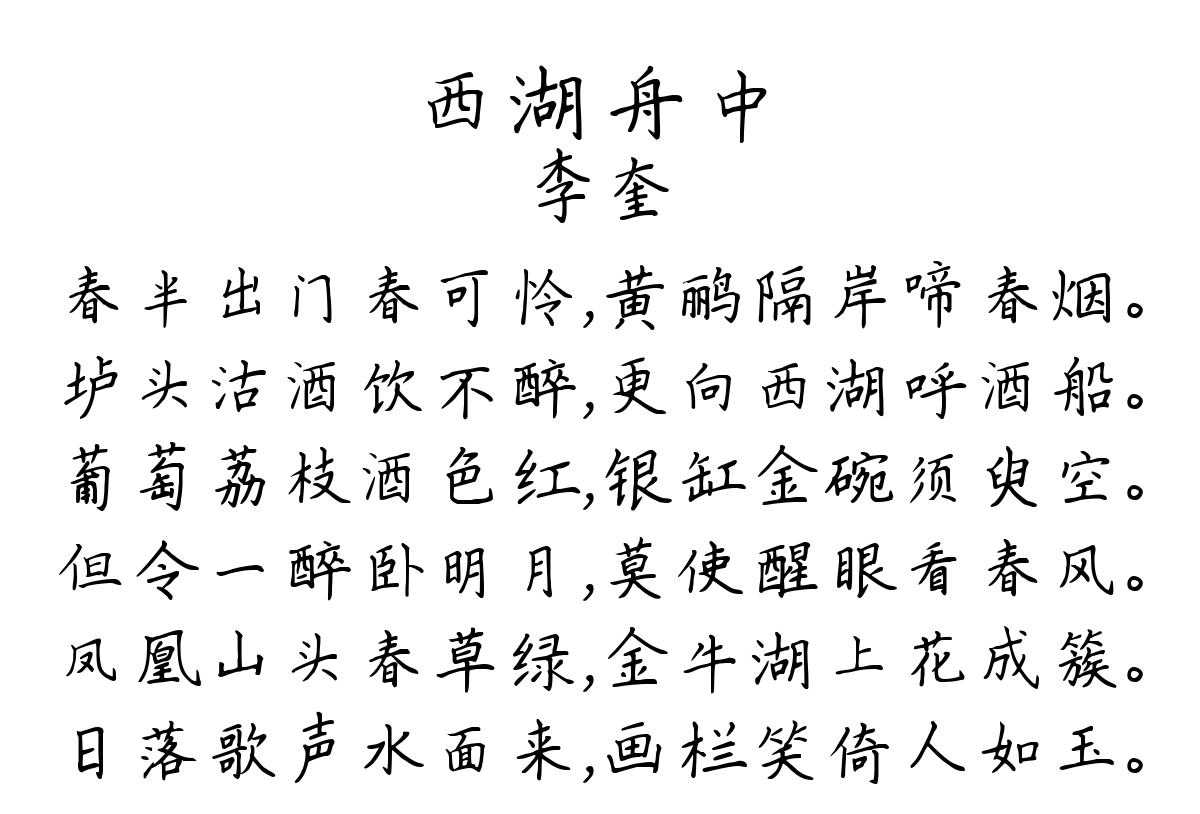 西湖舟中
李奎
春半出门春可怜,黄鹂隔岸啼春烟。
垆头沽酒饮不醉,更向西湖呼酒船。
葡萄荔枝酒色红,银缸金碗须臾空。
但令一醉卧明月,莫使醒眼看春风。
凤凰山头春草绿,金牛湖上花成簇。
日落歌声水面来,画栏笑倚人如玉。